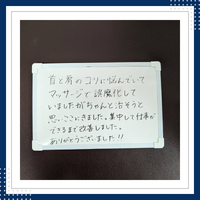 首と肩のコリに悩んでいて
マッサージで誤魔化して
いましたがちゃんと治そうと
思いここにきました。集中して仕事が
できるまで改善しました。
ありがとうございました!!